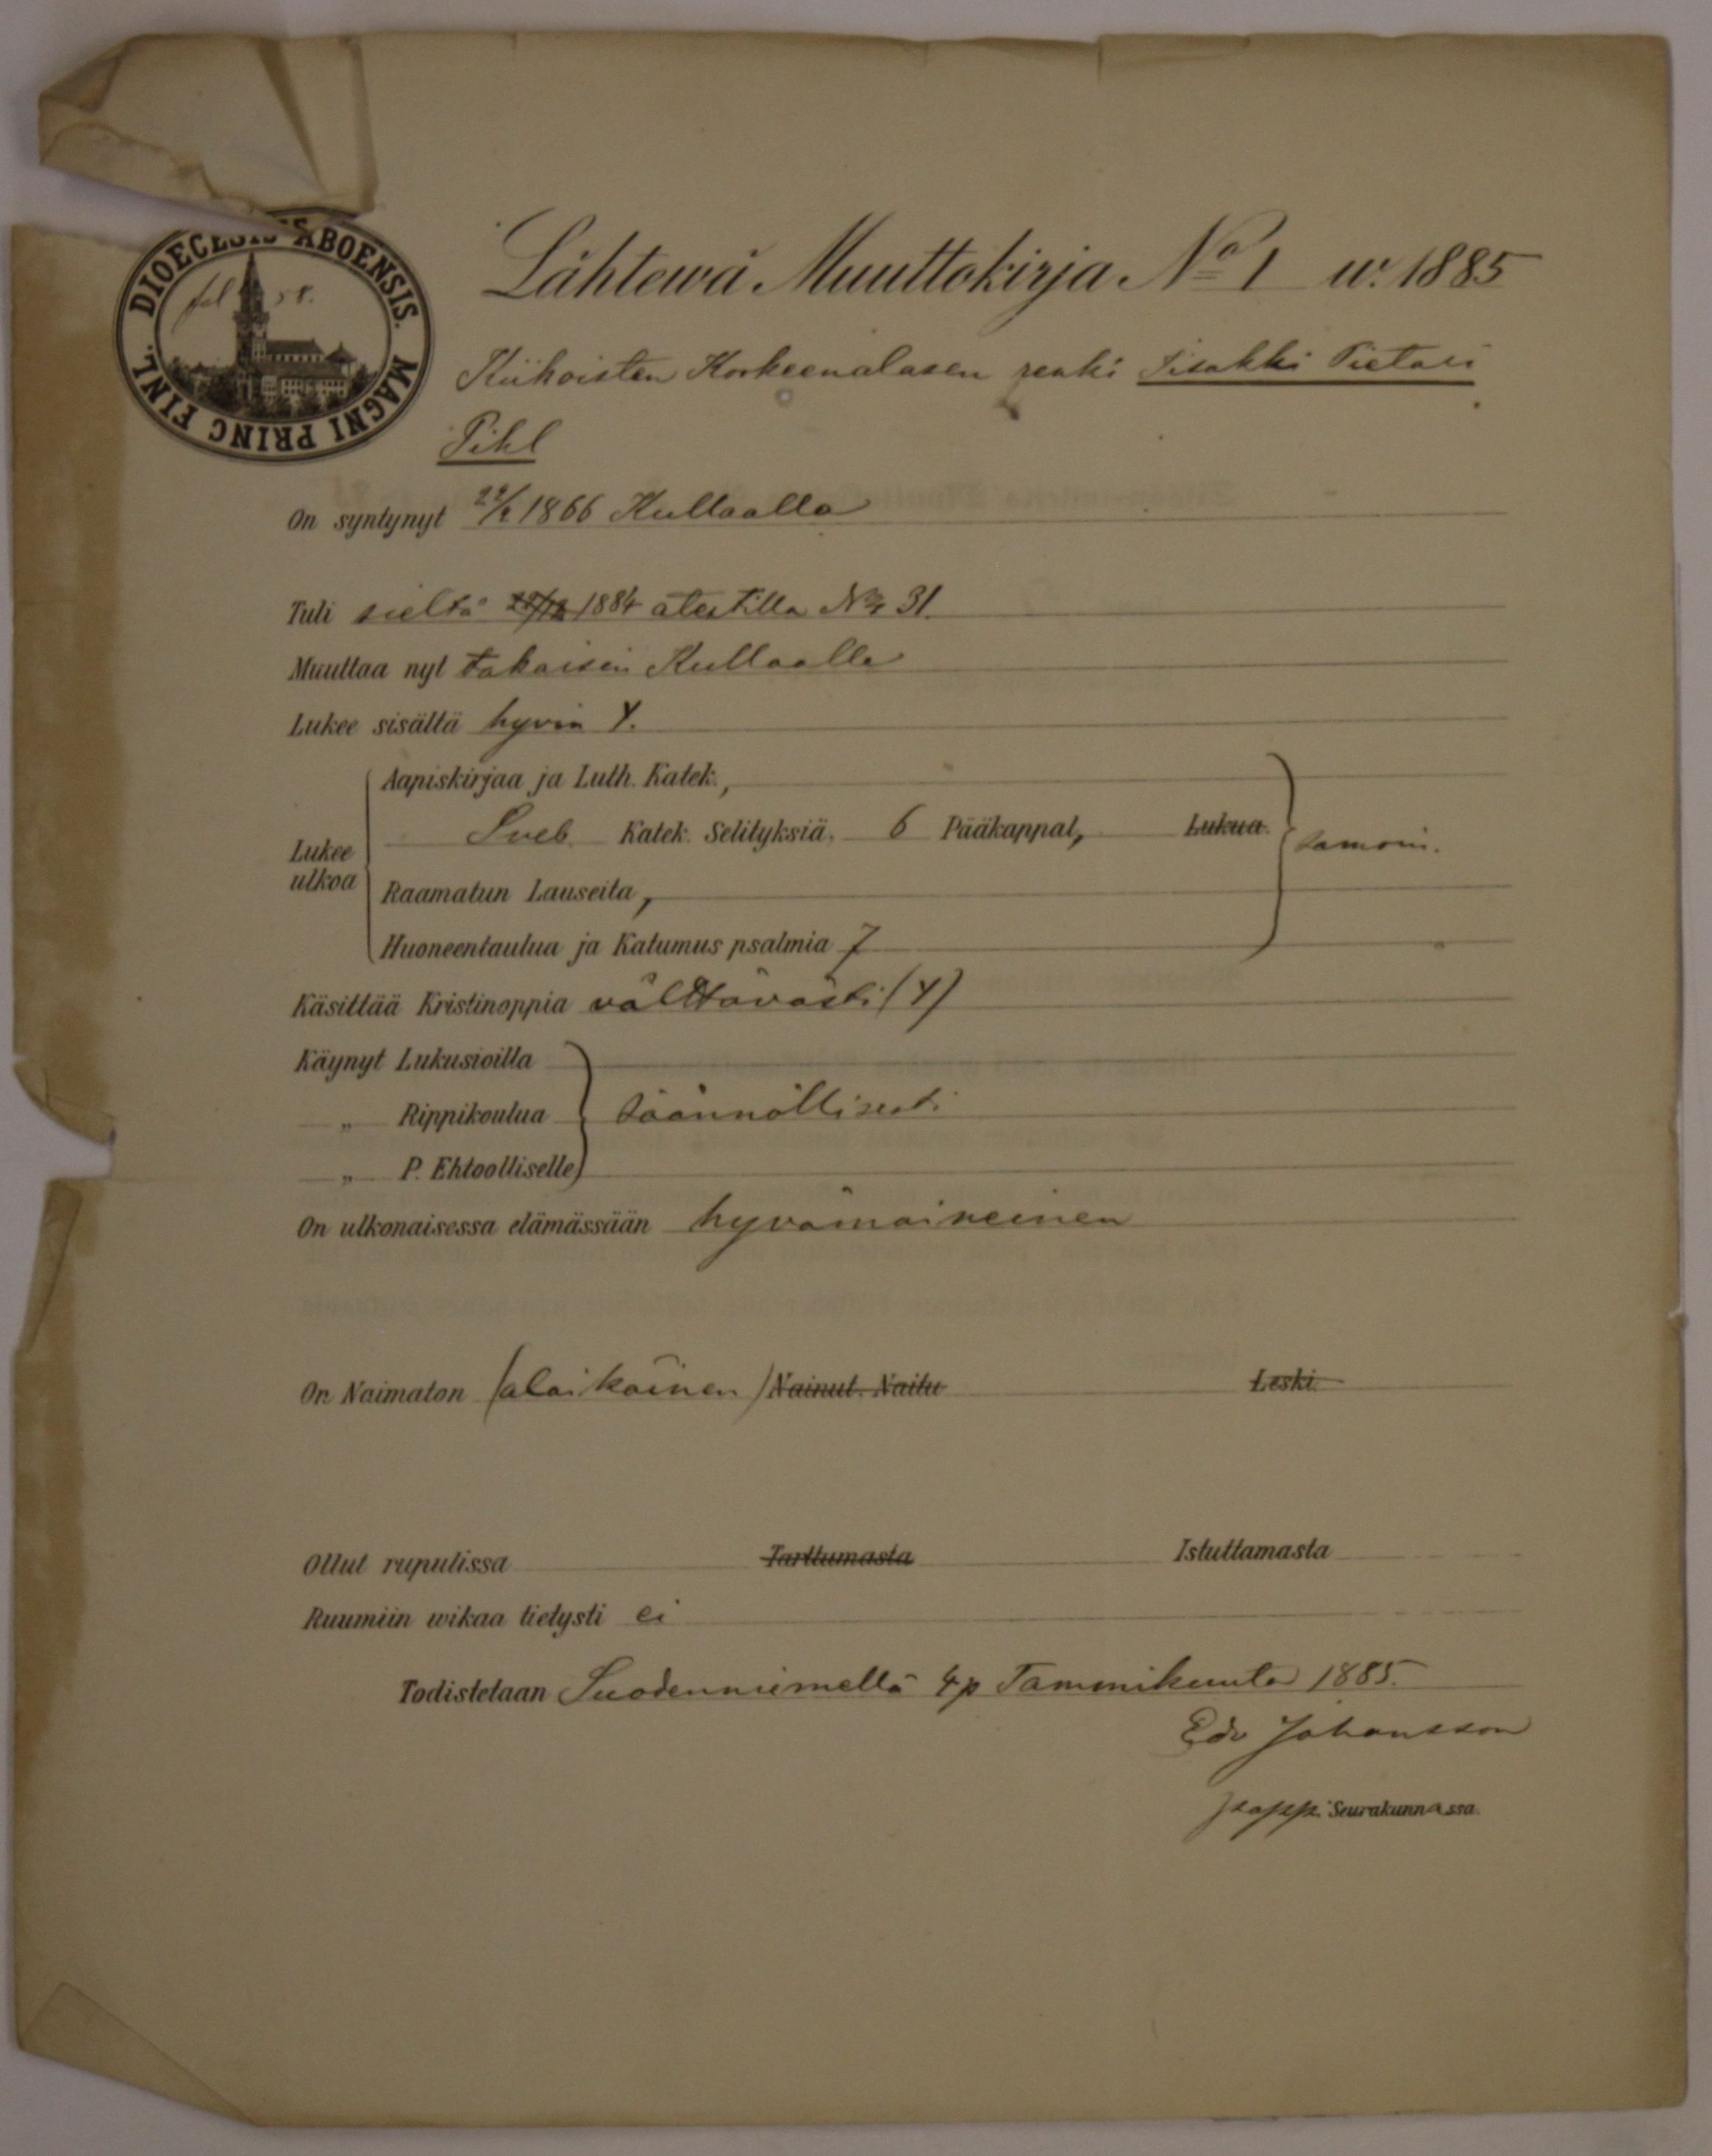 DIOECESIS ABOENSIS. MAGNI PRINC FINL.
fol 58.
Lähtewä Muuttokirja No 1 w. 1885
Kiikoisten Korkeenalasen renki Iisakki Pietari
Pihl
On syntynyt 1866 Kullaalla
Tuli sieltä 1884 atestilla No 31.
Muuttaa nyt takaisin Kullaalle
Lukee sisältä hyvin Y.
Aapiskirjaa ja Luth. Katek.,
Sveb. Katek. Selityksiä, 6 Pääkappal, Lukua.
Lukee ulkoa
samoin.
Raamatun Lauseita,
Huoneentaulua ja Katumus psalmia 7
Käsittää Kristinoppia välttävästi (Y)
Käynyt Lukusioilla
„ Rippikoulua säännöllisesti
„ P. Ehtoolliselle
On ulkonaisessa elämässään hyvämaineinen
On Naimaton (alaikäinen) Nainut. Naitu Leski.
Ollut rupulissa Tarttumasta Istuttamasta
Ruumiin wikaa tietysti ei
Todistetaan Suodenniemellä 4 p Tammikuuta 1885.
Edv Johansson
Seurakunnassa.